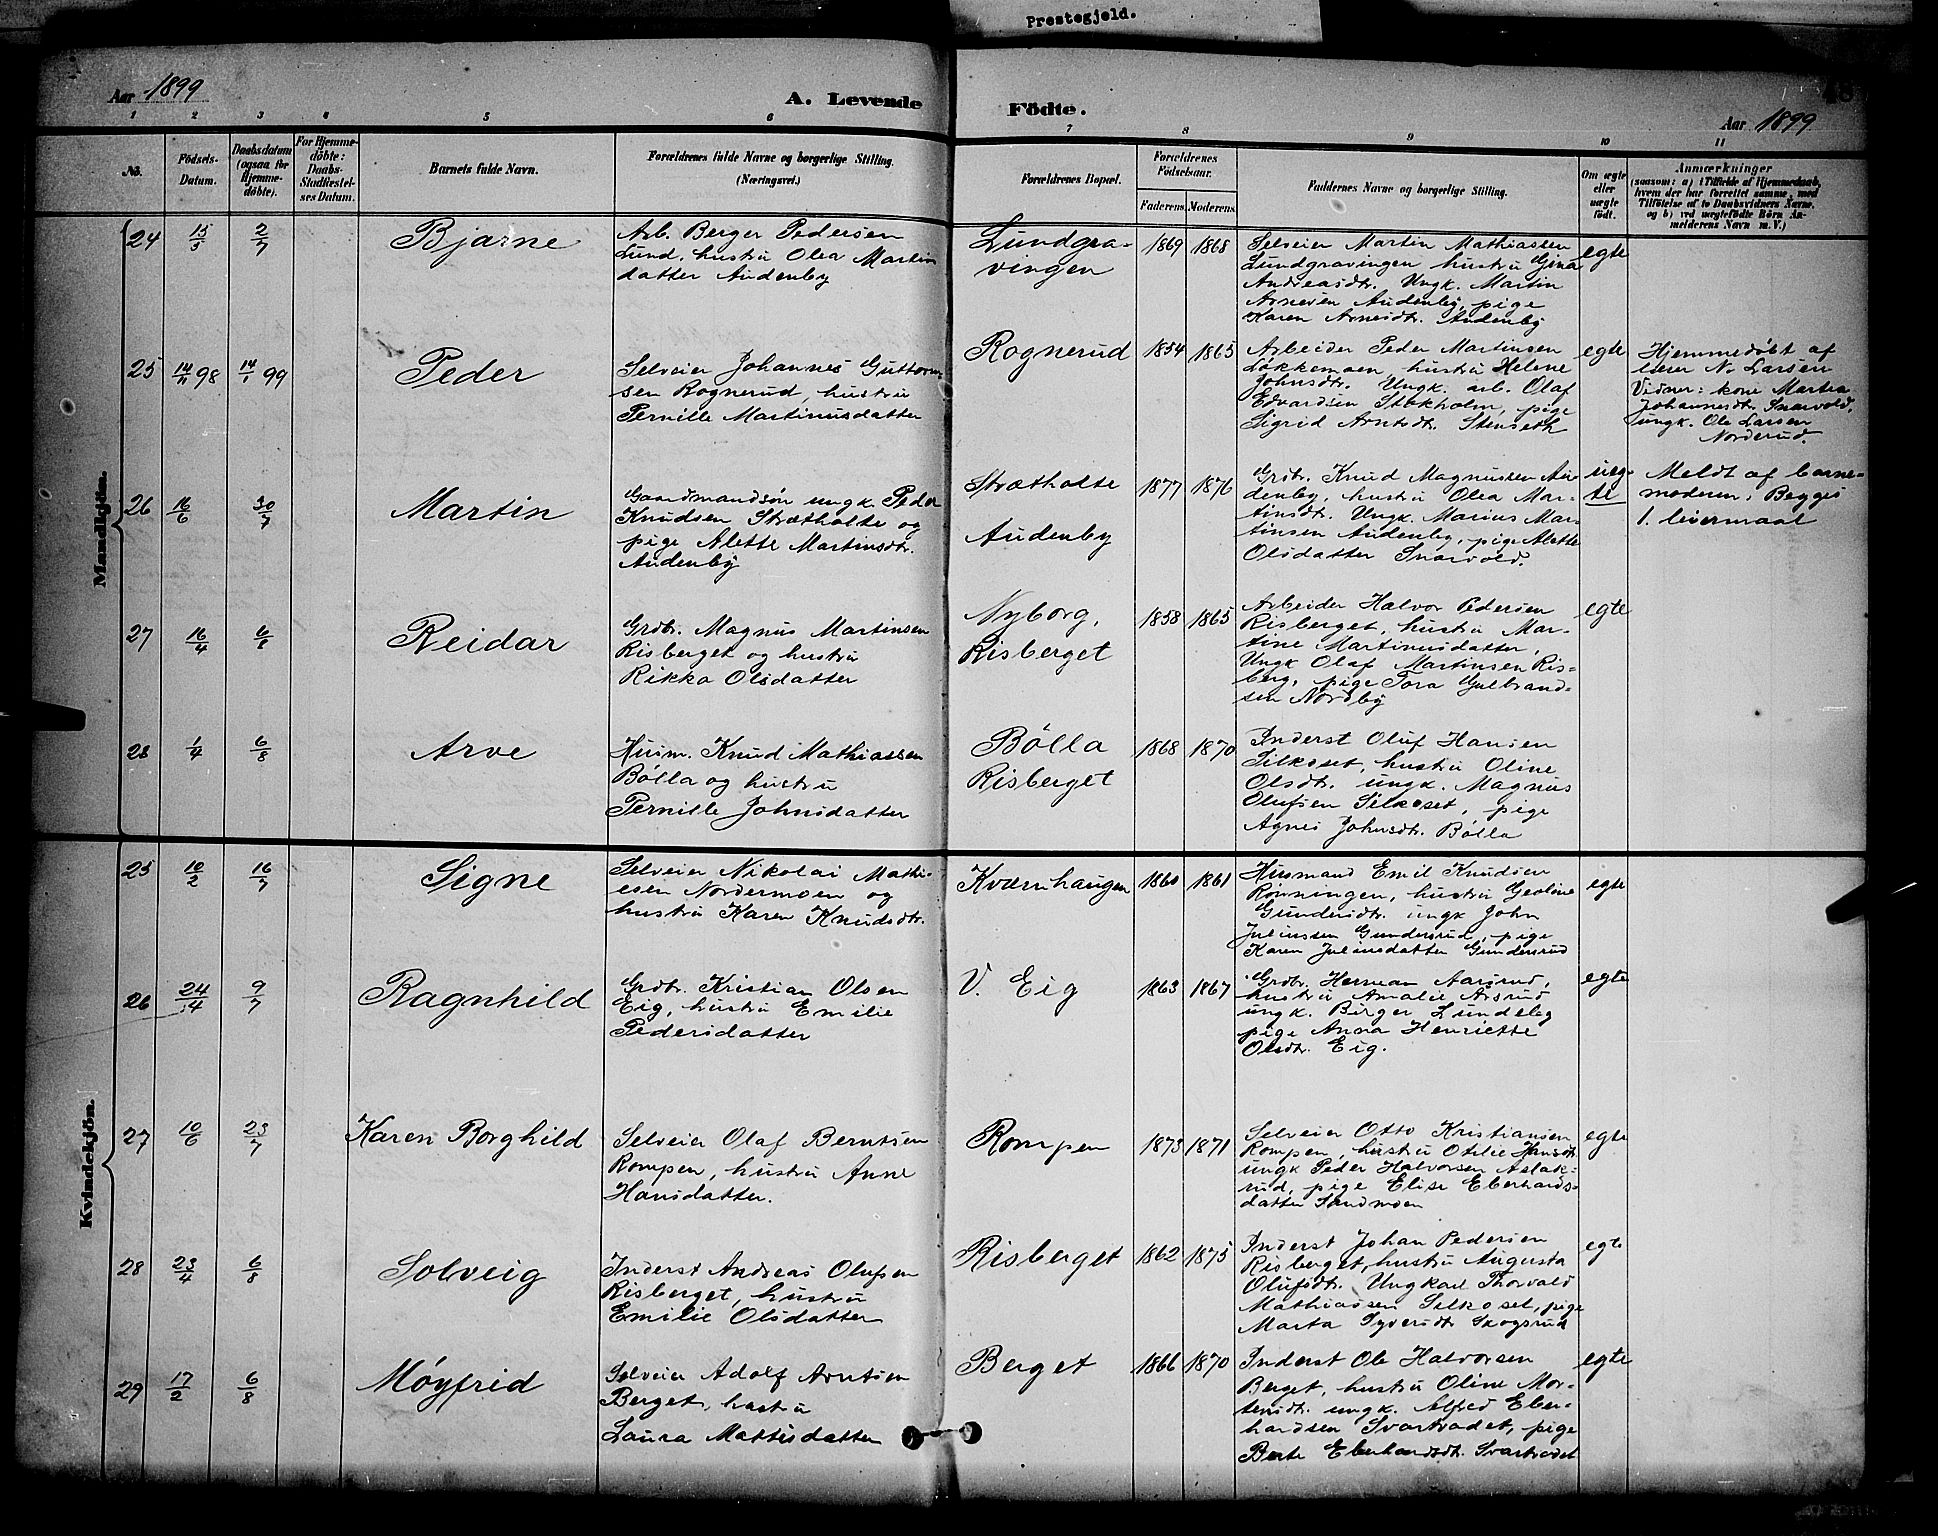 Prestegjeld.
Aar 1899
A. Levende
Födte.
Aar 1899
1 2 3 4 5 6 7 8 9 10 11
No.
Födsels-
Datum.
Daabsdatum
(ogsaa for
Hjemme-
döbte).
For Hjemme-
döbte:
Daabs-
Stadfæstel-
ses Datum.
Barnets fulde Navn.
Forældrenes fulde Navne og borgerlige Stilling.
(Næringsvei.)
Forældrenes Bopæl.
Forældrenes
Födselsaar.
Faderens.
Moderens.
Faddernes Navne og borgerlige Stilling.
Om ægte
eller
uægte
födt.
Anmærkninger
(saasom: a) i Tilfælde af Hjemmedaab,
hvem der har forrettet samme, med
Tilföielse af to Daabsvidners Navne,
og b) ved uægtefödte Börn An-
melderens Navn m. V.)
Mandkjön.
24
15/5
2/7
Bjarne
Arb. Berger Pedersen
Lund, hustru Olea Martin
datter Audenby
Lundgra-
vingen
1869
1868
Selveier Martin Mathiassen
Lundgravingen hustru Gina
Andreasdtr. Ungk. Martin
Arnesen Audenby, pige
Karen Arnesdtr. Audenby
egte
25
14/11 98
14/1 99
Peder
Selveier Johannes Guttorm-
sen Rognerud, hustru
Pernille Martinusdatter
Rognerud
1854
1865
Arbeider Peder Martinsen
Løkkemoen, hustru Helene
Johnsdtr. Ungk. arb. Olaf
Edvardsen Stokholm, pige
Sigrid Arntsdtr. Stenseth
egte
Hjemmedøbt af
lærer N. Larsen
Vidner: kone Martha
Johannesdtr. Snarvold,
ungk. Ole Larsen
Norderud.
26
16/6
30/7
Martin
Gaardmandsøn ungk. Peder
Knudsen Strætholte og
pige Alette Martinsdtr.
Audenby
Strætholte
Audenby
1877
1876
Grdbr. Knud Magnussen Au-
denby, hustru Olea Mar-
tinsdtr. Ungk. Marius Mar-
tinsen Audenby, pige Alette
Olsdatter Snarvold.
ueg-
te
Meldt af barne-
moderen; Begges
1. leiermaal
27
16/4
6/8
Reidar
Grdbr. Magnus Martinsen
Risberget og hustru
Rikka Olsdatter
Nyborg,
Risberget
1858
1865
Arbeider Halvor Pedersen
Risberget, hustru Mar-
tine Martinusdatter,
Ungk Olaf Martinsen Ris-
berg, pige Tora Gulbrand-
sen Nordby
egte
28
1/4
6/8
Arve
Husm. Knud Mathiassen
Bölla og hustru
Pernille Johnsdatter
Bölla
Risberget
1868
1870
Inderst Oluf Hansen
Silkoset, hustru Oline
Olsdt. ungk. Magnus
Olufsen Silkoset, pige
Agnes Johnsdtr. Bölla
Kvindekjön.
25
10/2
16/7
Signe
Selveier Nikolai Mathi-
esen Nordermoen og
hustru Karen Knudsdtr.
Kværnhaugen
1860
1861
Husmand Emil Knudsen
Rønningen, hustru Geoline
Gundersdtr. ungk John
Juliussen Gundersrud, pige
Karen Juliusdatter Gundersrud
egte
26
24/4
9/7
Ragnhild
Grdbr. Kristian Olsen
Eig, hustru Emilie
Pedersdatter
V. Eig
1863
1867
Grdbr. Herman Aarsrud,
hustru Amalie Arsrud
ungk. Birger Lundeby
pige Anna Henriette
Olsdtr. Eig.
egte
27
10/6
23/7
Karen Borghild
Selveier Olaf Berntsen
Rompen, hustru Anne
Hansdatter.
Rompen
1873
1871
Selveier Otto Kristiansen
Rompen, hustru Otilie Hansdtr.
ungk Peder Halvorsen Aslak-
rud, pige Elise Eberhards-
datter Sandmoen
egte
28
23/4
6/8
Solveig
Inderst Andreas Olufsen
Risberget, hustru
Emilie Olsdatter
Risberget
1862
1875
Inderst Johan Pedersen
Risberget, hustru Augusta
Olufsdtr. Ungkarl Thorvald
Mathiassen Silkoset, pige
Marta Syversdtr Skogsrud
egte
29
17/2
6/8
Møyfrid
Selveier Adolf Arntsen
Berget, hustru
Laura Mattisdatter
Berget
1866
1870
Inderst Ole Halvorsen
Berget, hustru Oline Mor-
tensdtr. ungk. Alfred Eber-
hardsen Svartvadet, pige
Berte Eberhardsdtr. Svartvadet
egte